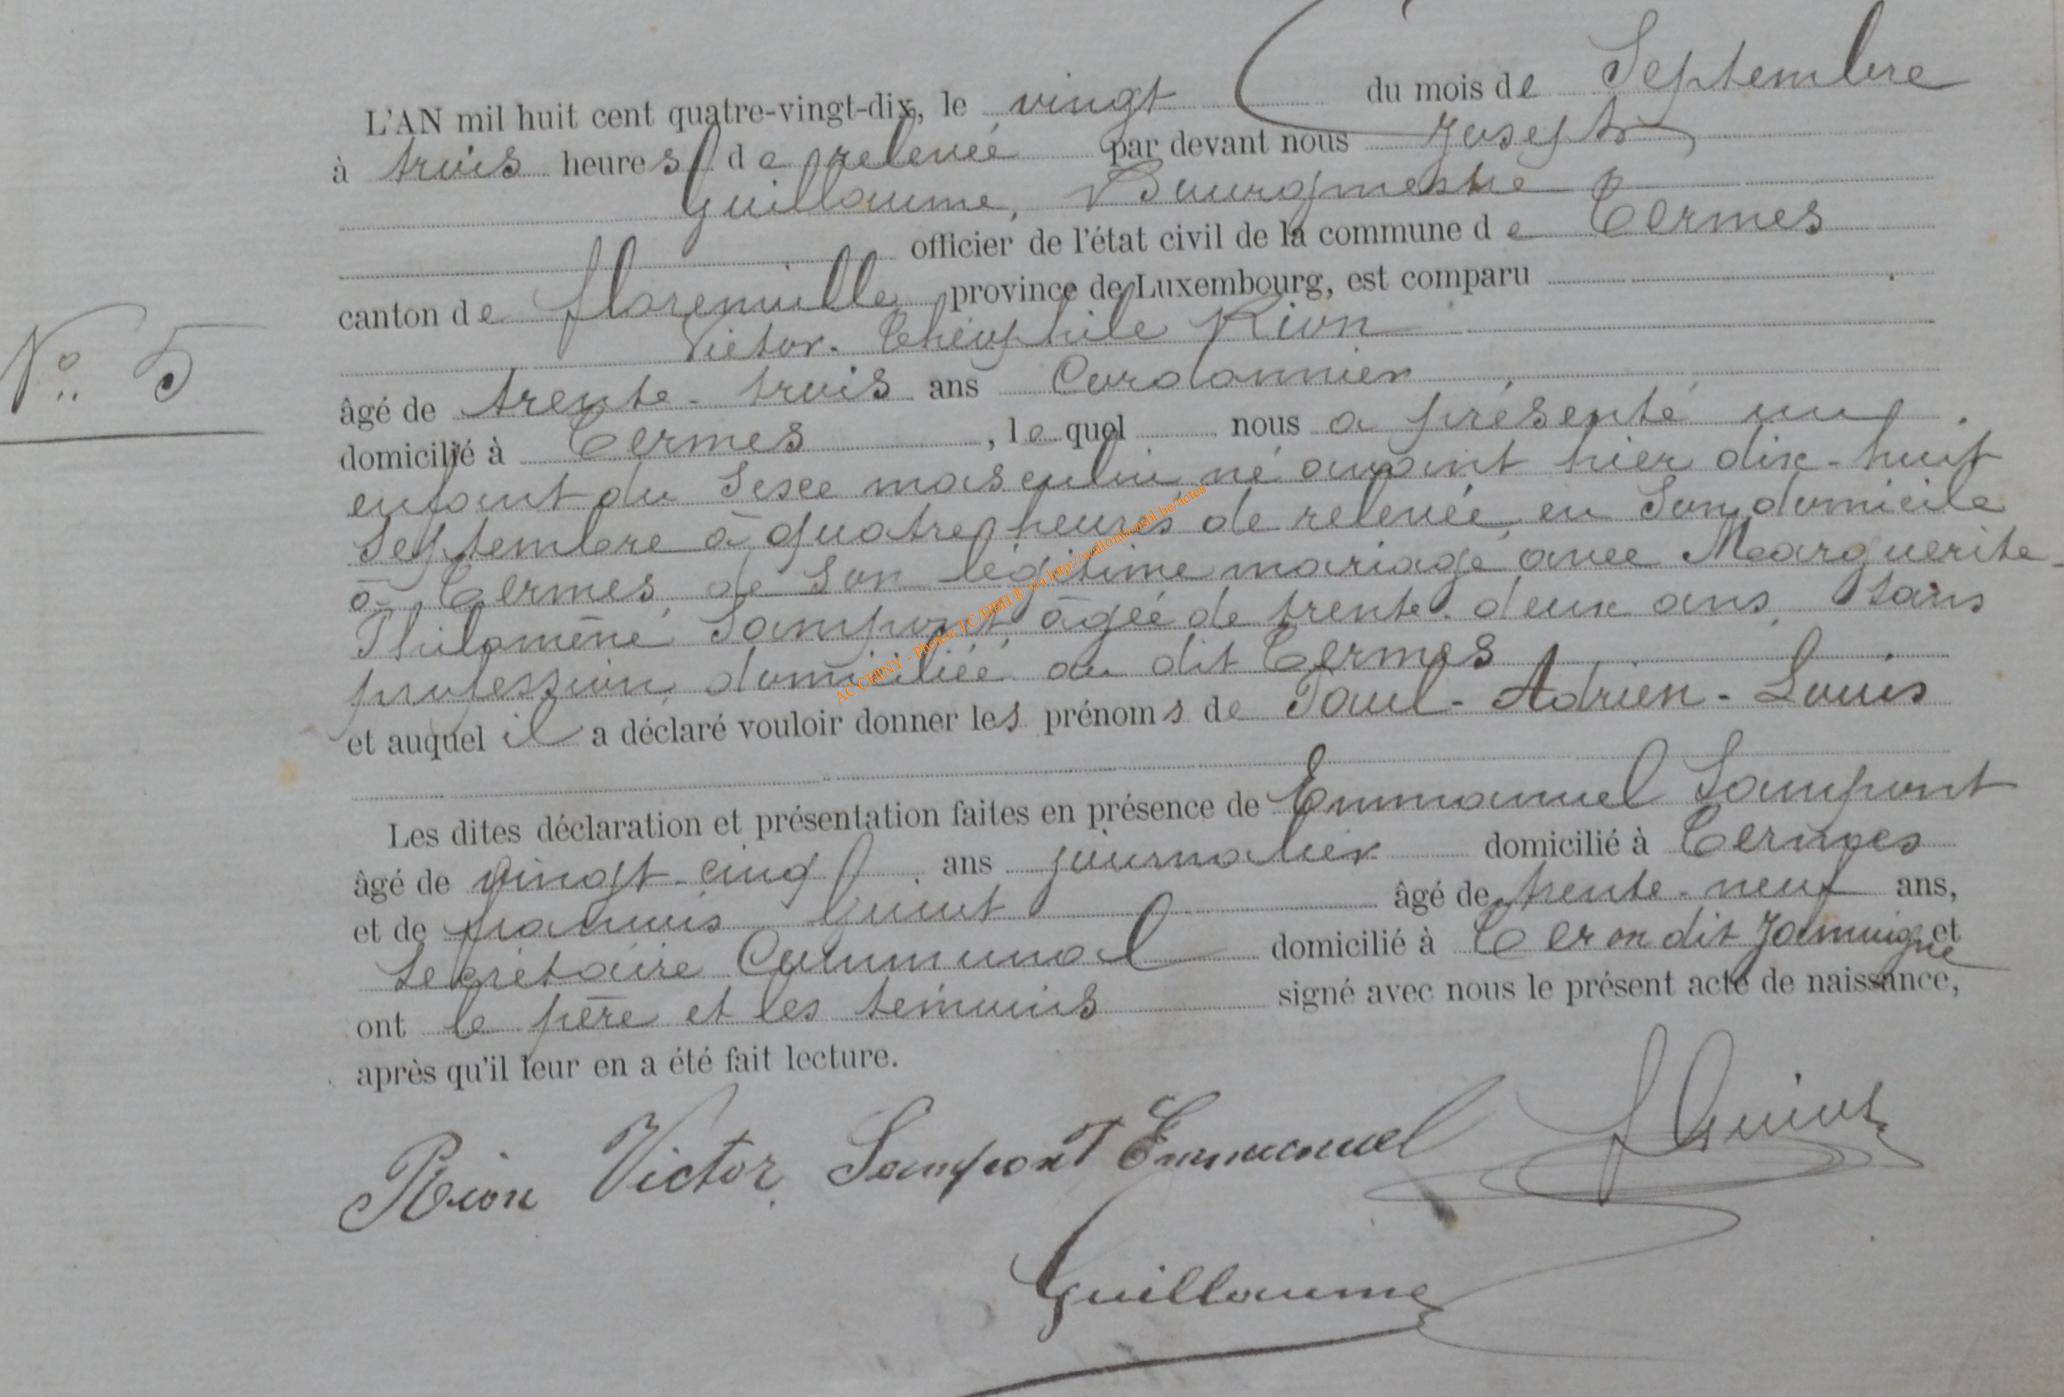 L'AN mil huit cent quatre-vingt-dix, le vingt du mois de Septembre
à trois heures de relevée par devant nous Joseph
Guillaume, Bourgmestre
officier de l'état civil de la commune de Termes
canton de florenville province de Luxembourg, est comparu
Victor-Théophile Rion
N° 5
âgé de trente-trois ans Cordonnier
domicilié à Termes, lequel nous a présenté un
enfant du Sexe masculin né avant hier dix-huit
Septembre à quatre heures de relevée en Son domicile
à Termes de Son légitime mariage avec Marguerite-
Philomène Sampont âgée de trente-deux ans, sans
profession, domiciliée au dit Termes
et auquel il a déclaré vouloir donner les prénoms de Paul-Adrien-Louis
Les dites déclaration et présentation faites en présence de Emmanuel Sampont
âgé de vingt-cinq ans journalier domicilié à Termes
et de françois Guiot âgé de trente-neuf ans,
Secrétaire Communal domicilié à dit Jamoigne et
ont le père et les témoins signé avec nous le présent acte de naissance,
après qu'il leur en a été fait lecture.
Rion Victor Sampont Emmanuel f Guiot
Guillaume